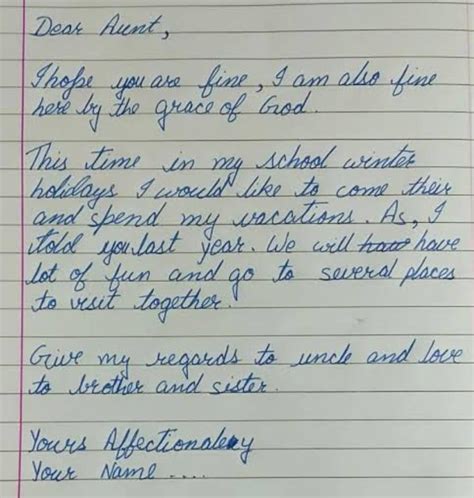 Dear Aunt,
I hope you are fine, I am also fine
here by the grace of God.
This time in my school winter
holidays I would like to come their
and spend my vacations. As, I
told you last year. We will have
lot of fun and go to several places
to visit together.
Give my regards to uncle and love
to brother and sister.
Yours Affectionately
Your Name ....